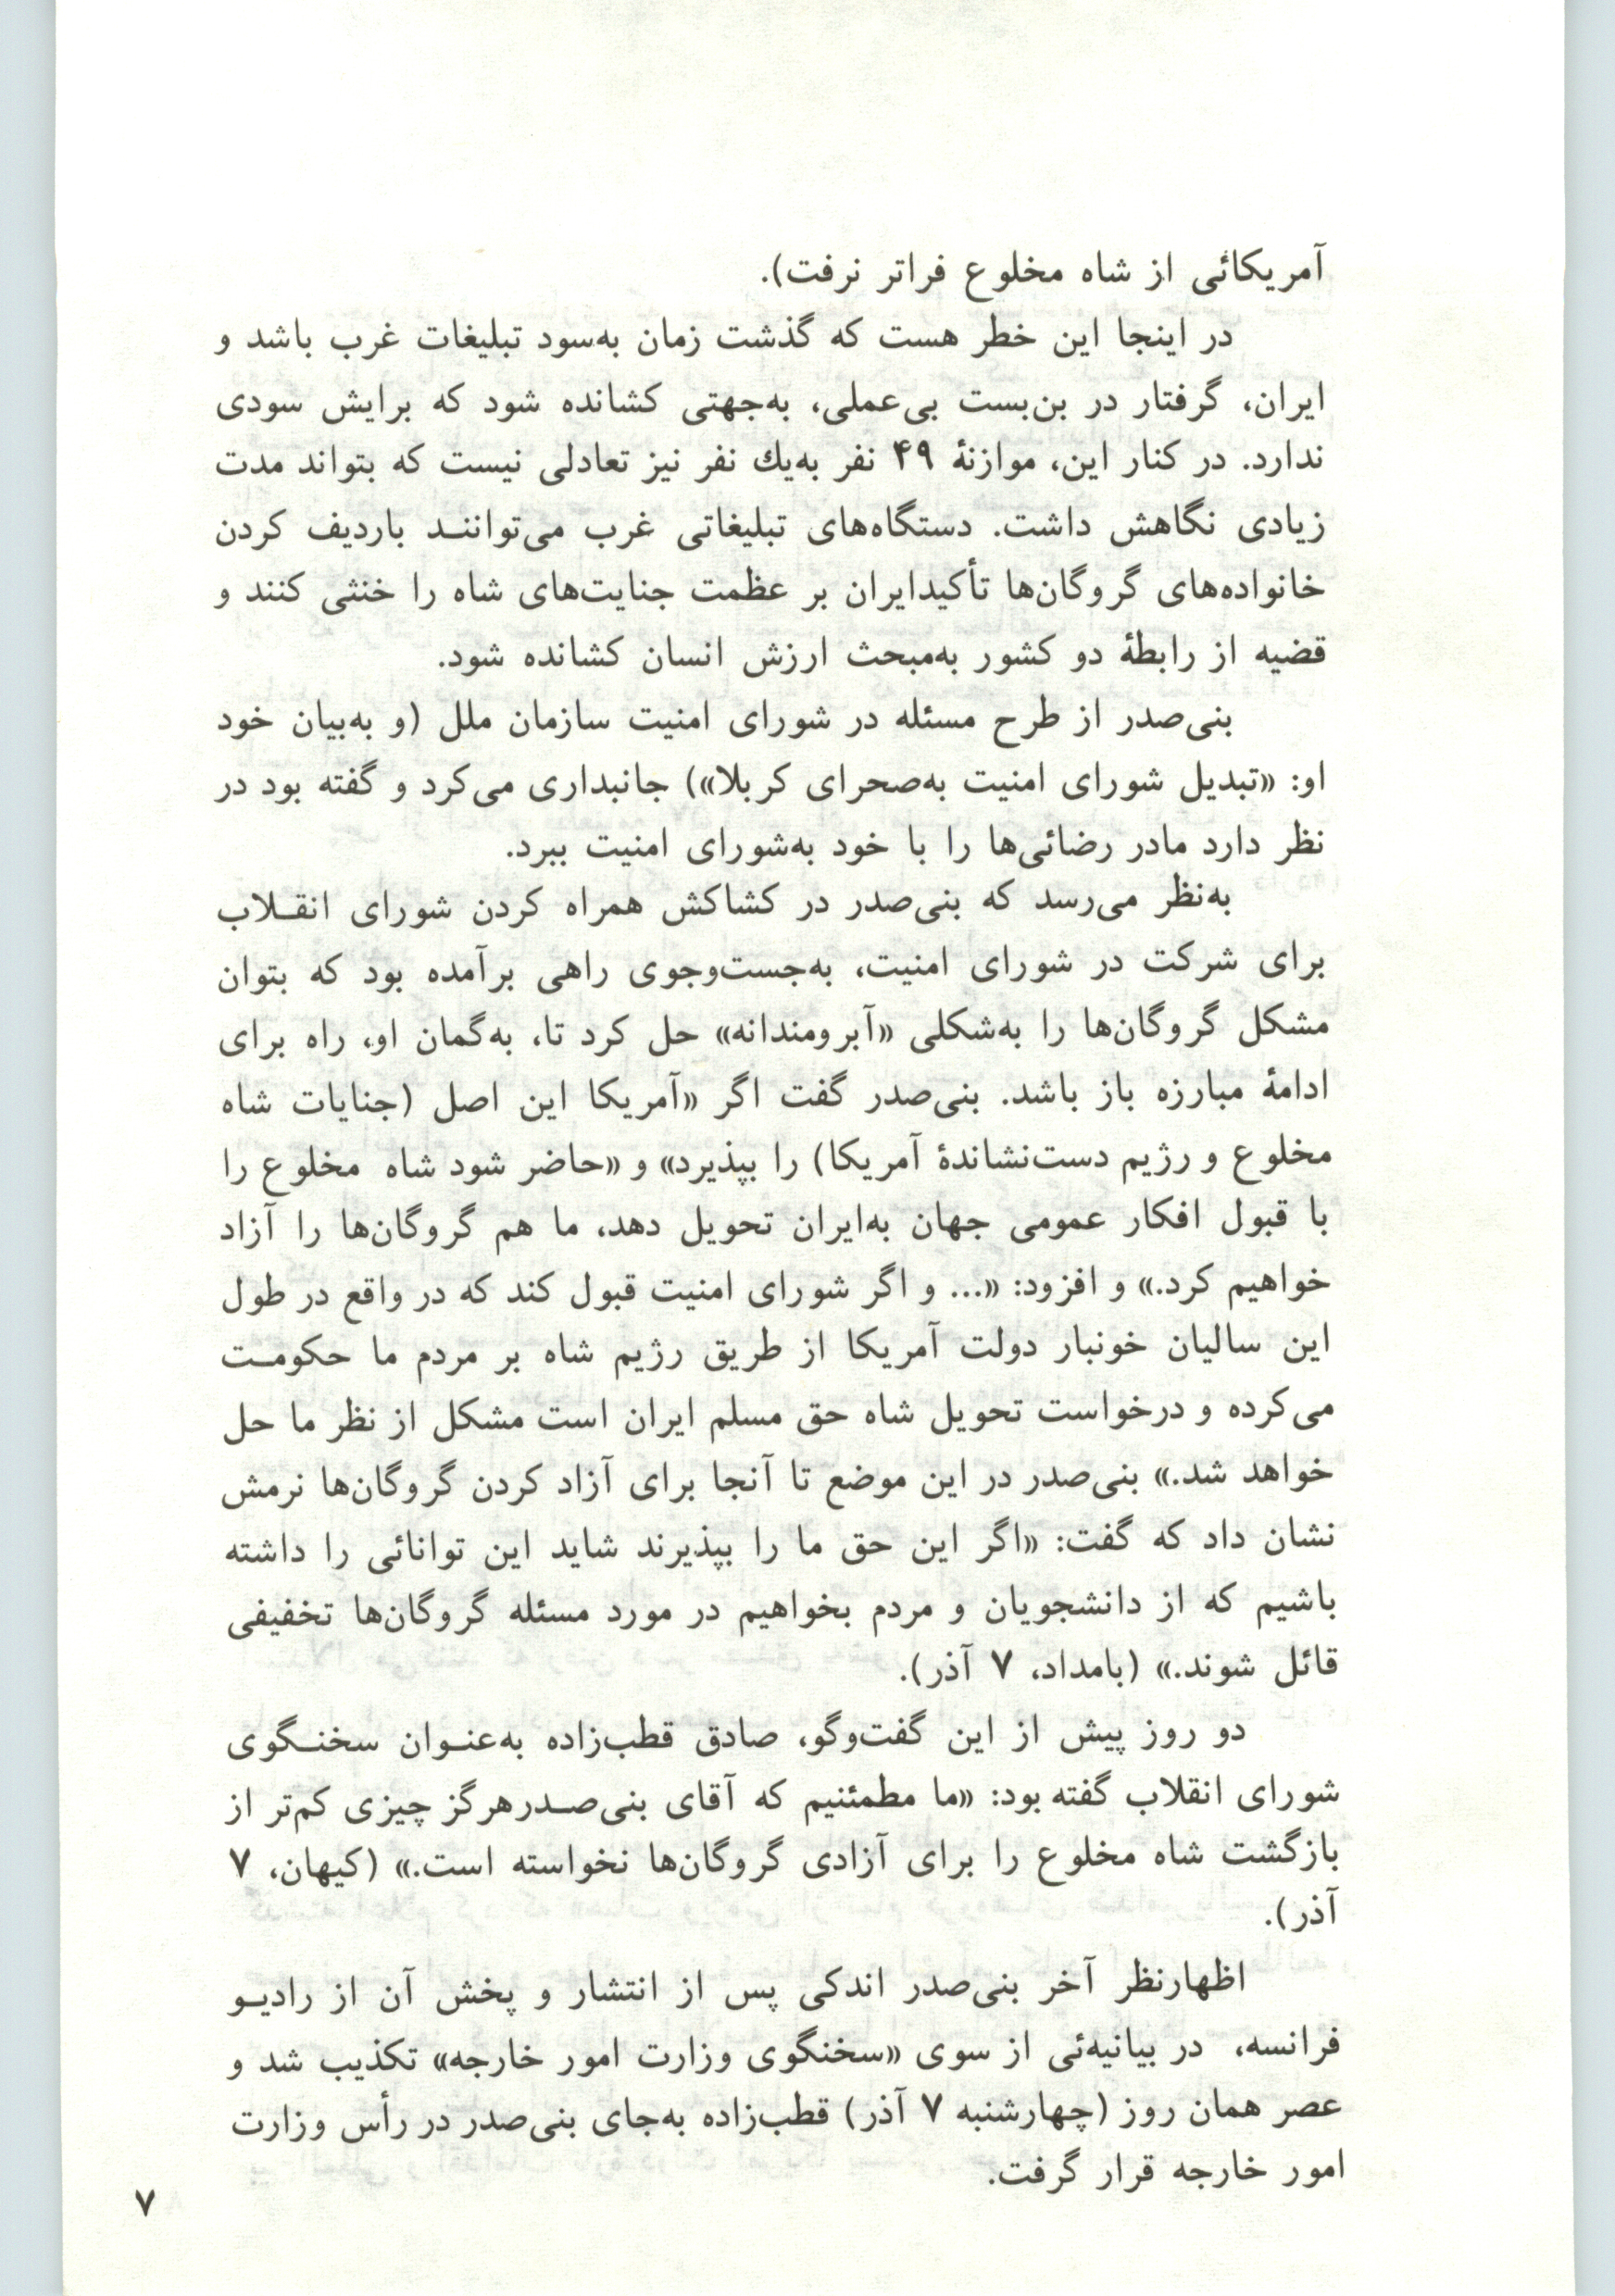 آمریکائی از شاه مخلوع فراتر نرفت).
در اینجا این خطر هست که گذشت زمان به‌سود تبلیغات غرب باشد و
ایران، گرفتار در بن‌بست بی‌عملی، به‌جهتی کشانده شود که برایش سودی
ندارد. در کنار این، موازنهٔ ۴۹ نفر به‌یك نفر نیز تعادلی نیست که بتواند مدت
زیادی نگاهش داشت. دستگاه‌های تبلیغاتی غرب می‌تواننـد باردیف کردن
خانواده‌های گروگان‌ها تأکیدایران بر عظمت جنایت‌های شاه را خنثی کنند و
قضیه از رابطهٔ دو کشور به‌مبحث ارزش انسان کشانده شود.
بنی‌صدر از طرح مسئله در شورای امنیت سازمان ملل (و به‌بیان خود
او: «تبدیل شورای امنیت به‌صحرای کربلا») جانبداری می‌کرد و گفته بود در
نظر دارد مادر رضائی‌ها را با خود به‌شورای امنیت ببرد.
به‌نظر می‌رسد که بنی‌صدر در کشاکش همراه کردن شورای انقـلاب
برای شرکت در شورای امنیت، به‌جست‌وجوی راهی برآمده بود که بتوان
مشکل گروگان‌ها را به‌شکلی «آبرومندانه» حل کرد تا، به‌گمان او، راه برای
ادامهٔ مبارزه باز باشد. بنی‌صدر گفت اگر «آمریکا این اصل (جنایات شاه
مخلوع و رژیم دست‌نشاندهٔ آمریکا) را بپذیرد» و «حاضر شود شاه مخلوع را
با قبول افکار عمومی جهان به‌ایران تحویل دهد، ما هم گروگان‌ها را آزاد
خواهیم کرد.» و افزود: «... و اگر شورای امنیت قبول کند که در واقع در طول
این سالیان خونبار دولت آمریکا از طریق رژیم شاه بر مردم ما حکومـت
می‌کرده و درخواست تحویل شاه حق مسلم ایران است مشکل از نظر ما حل
خواهد شد.» بنی‌صدر در این موضع تا آنجا برای آزاد کردن گروگان‌ها نرمش
نشان داد که گفت: «اگر این حق ما را بپذیرند شاید این توانائی را داشته
باشیم که از دانشجویان و مردم بخواهیم در مورد مسئله گروگان‌ها تخفیفی
قائل شوند.» (بامداد، ۷ آذر).
دو روز پیش از این گفت‌وگو، صادق قطب‌زاده به‌عنـوان سخنـگوی
شورای انقلاب گفته بود: «ما مطمئنیم که آقای بنی‌صـدرهرگز چیزی کم‌تر از
بازگشت شاه مخلوع را برای آزادی گروگان‌ها نخواسته است.» (کیهان، ۷
آذر).
اظهارنظر آخر بنی‌صدر اندکی پس از انتشار و پخش آن از رادیـو
فرانسه، در بیانیه‌ئی از سوی «سخنگوی وزارت امور خارجه» تکذیب شد و
عصر همان روز (چهارشنبه ۷ آذر) قطب‌زاده به‌جای بنی‌صدر در رأس وزارت
امور خارجه قرار گرفت.
۷